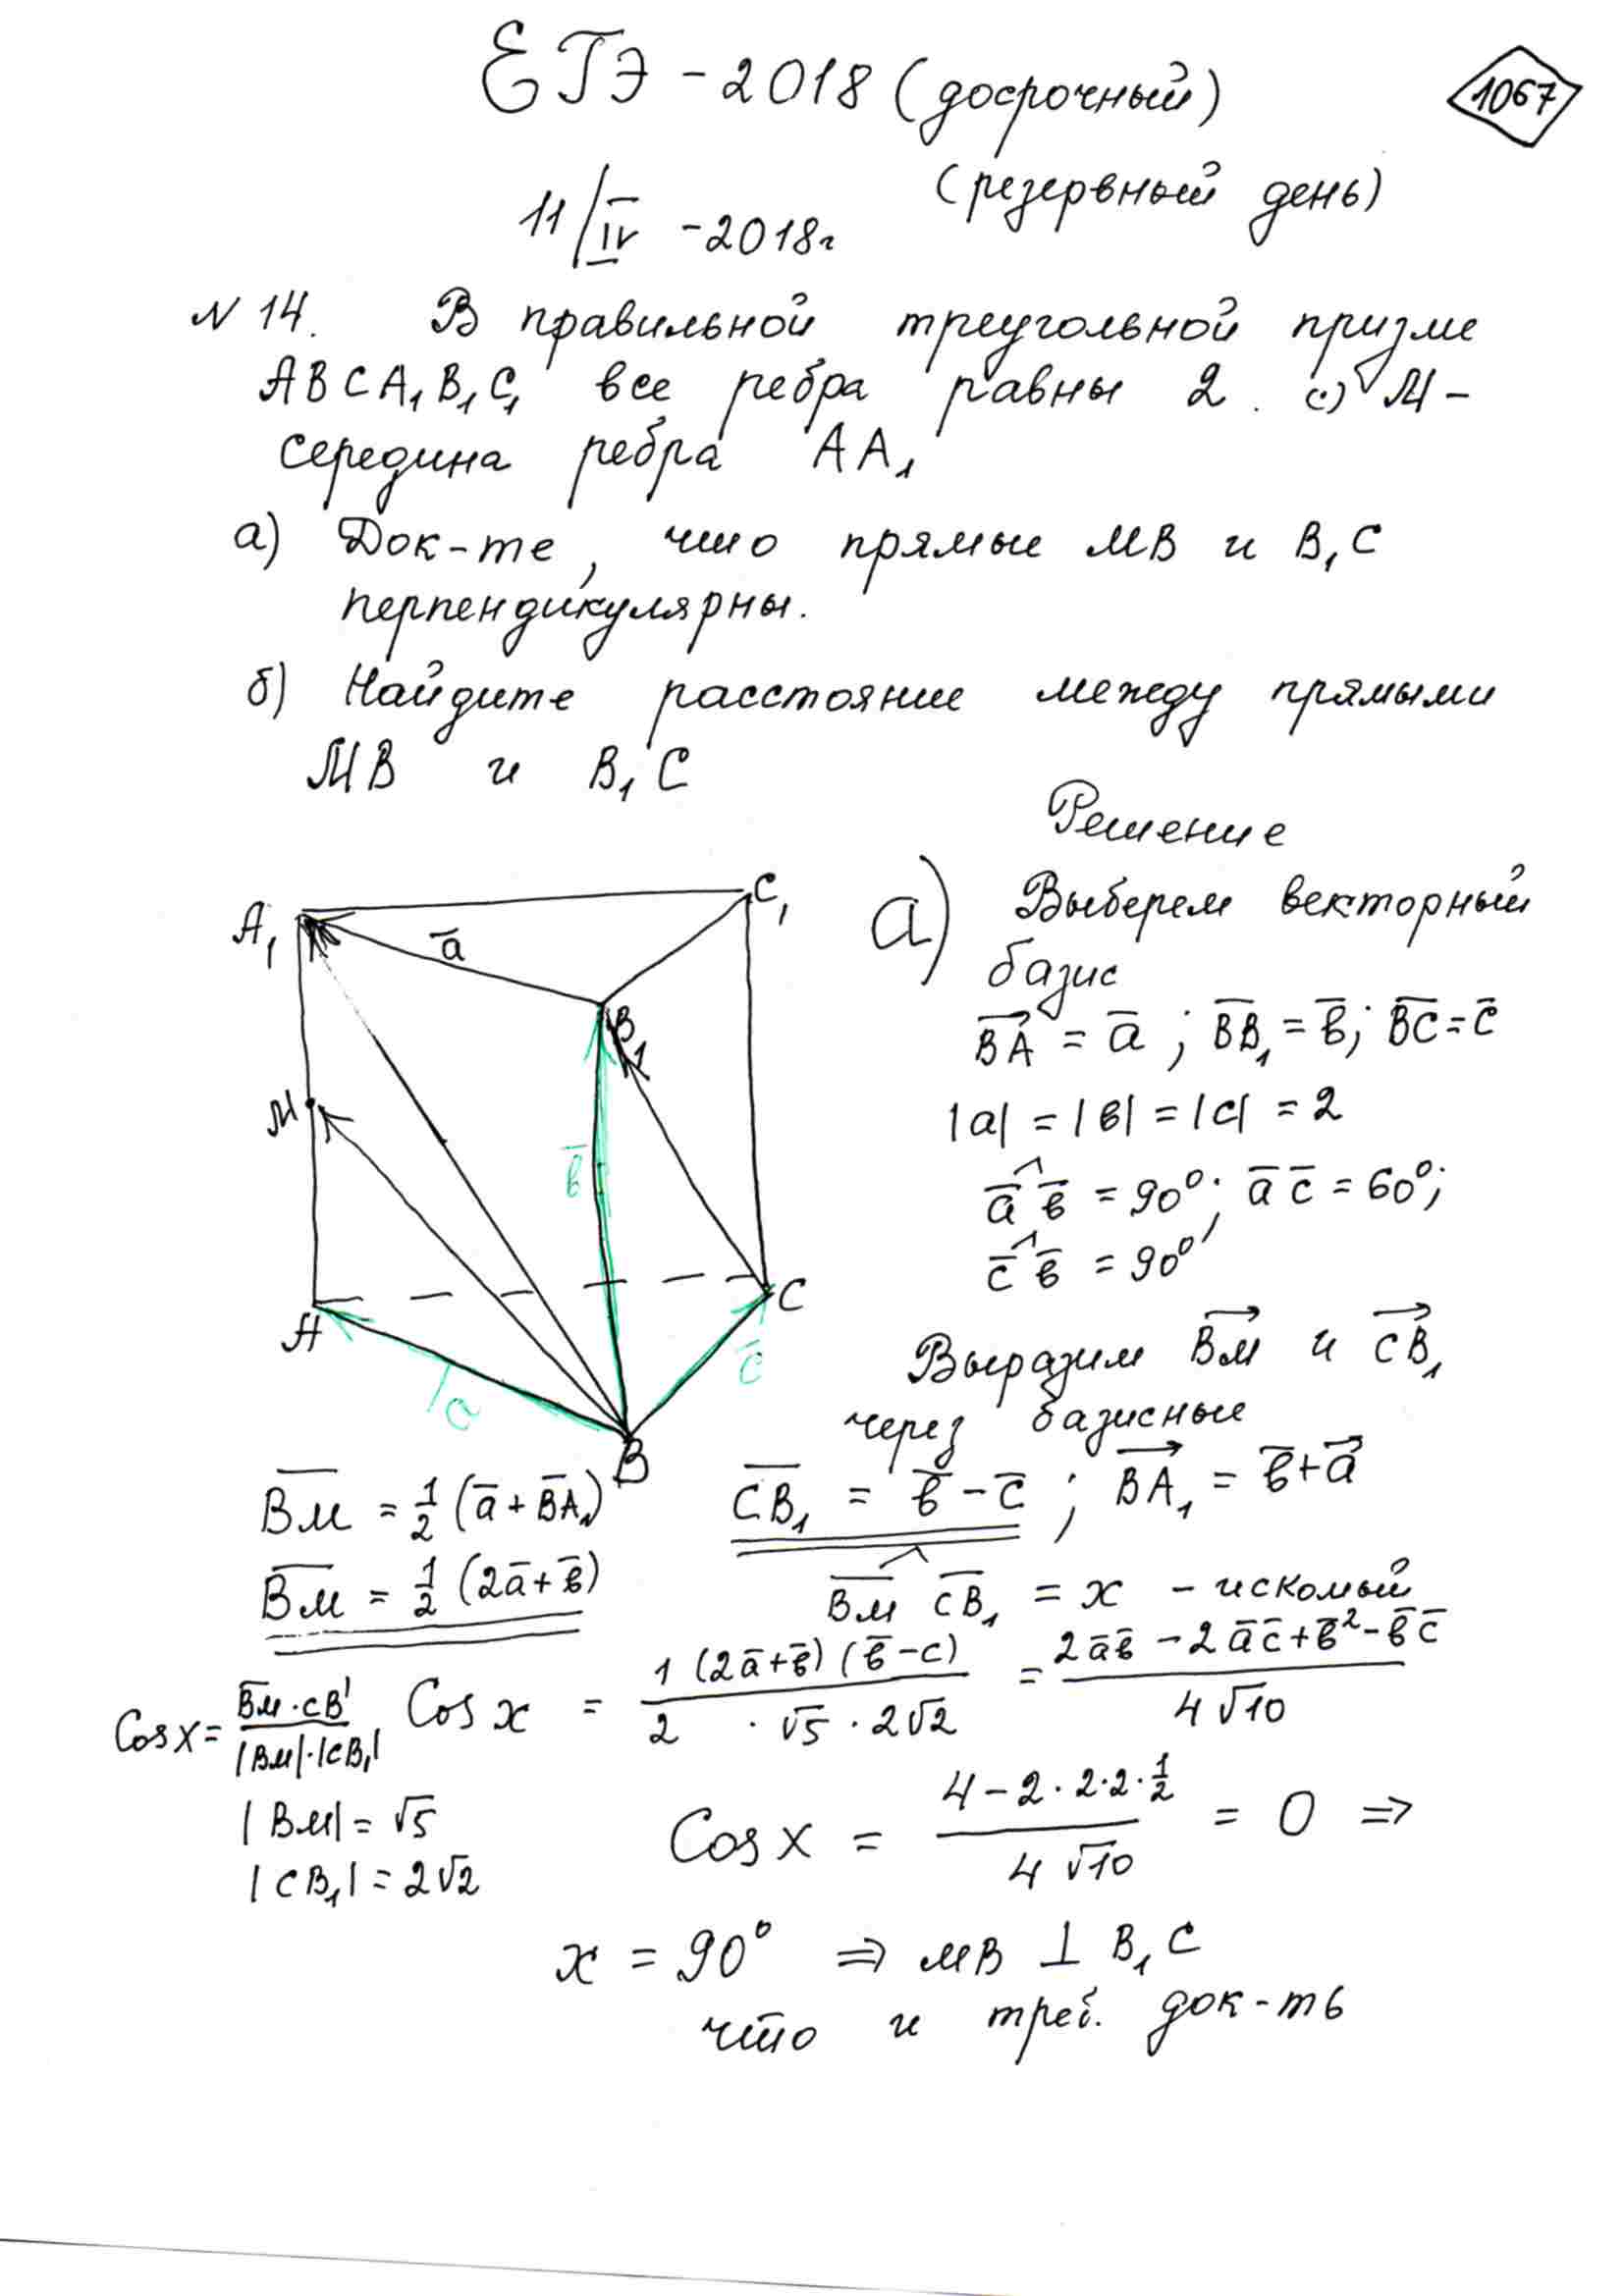 ЕГЭ - 2018 (досрочный)
1067
(резервный день)
11/IV - 2018г
N 14. В правильной треугольной призме
ABCA₁B₁C₁ все ребра равны 2. с) М -
середина ребра AA₁
а) Док-те, что прямые MB и B₁C
перпендикулярны.
б) Найдите расстояние между прямыми
MB и B₁C
Решение
а) Выберем векторный
базис
BA = a ; BB₁ = b; BC = c
|a| = |b| = |c| = 2
a b = 90°; a c = 60°;
c b = 90°
Выразим BM и CB₁
через базисные
A₁
a
C₁
B₁
M
b
A
C
a
c
B
BM = 1/2 (a + BA₁)
CB₁ = b - c ; BA₁ = b + a
BM = 1/2 (2a + b)
BM CB₁ = x - искомый
Cos x = BM · CB₁ / |BM| · |CB₁|
Cos x = 1 (2a + b) (b - c) / 2 · √5 · 2√2 = 2ab - 2ac + b² - bc / 4√10
|BM| = √5
|CB₁| = 2√2
Cos x = 4 - 2 · 2 · 2 · 1/2 / 4√10 = 0 ⇒
x = 90° ⇒ MB ⊥ B₁C
что и треб. док-ть